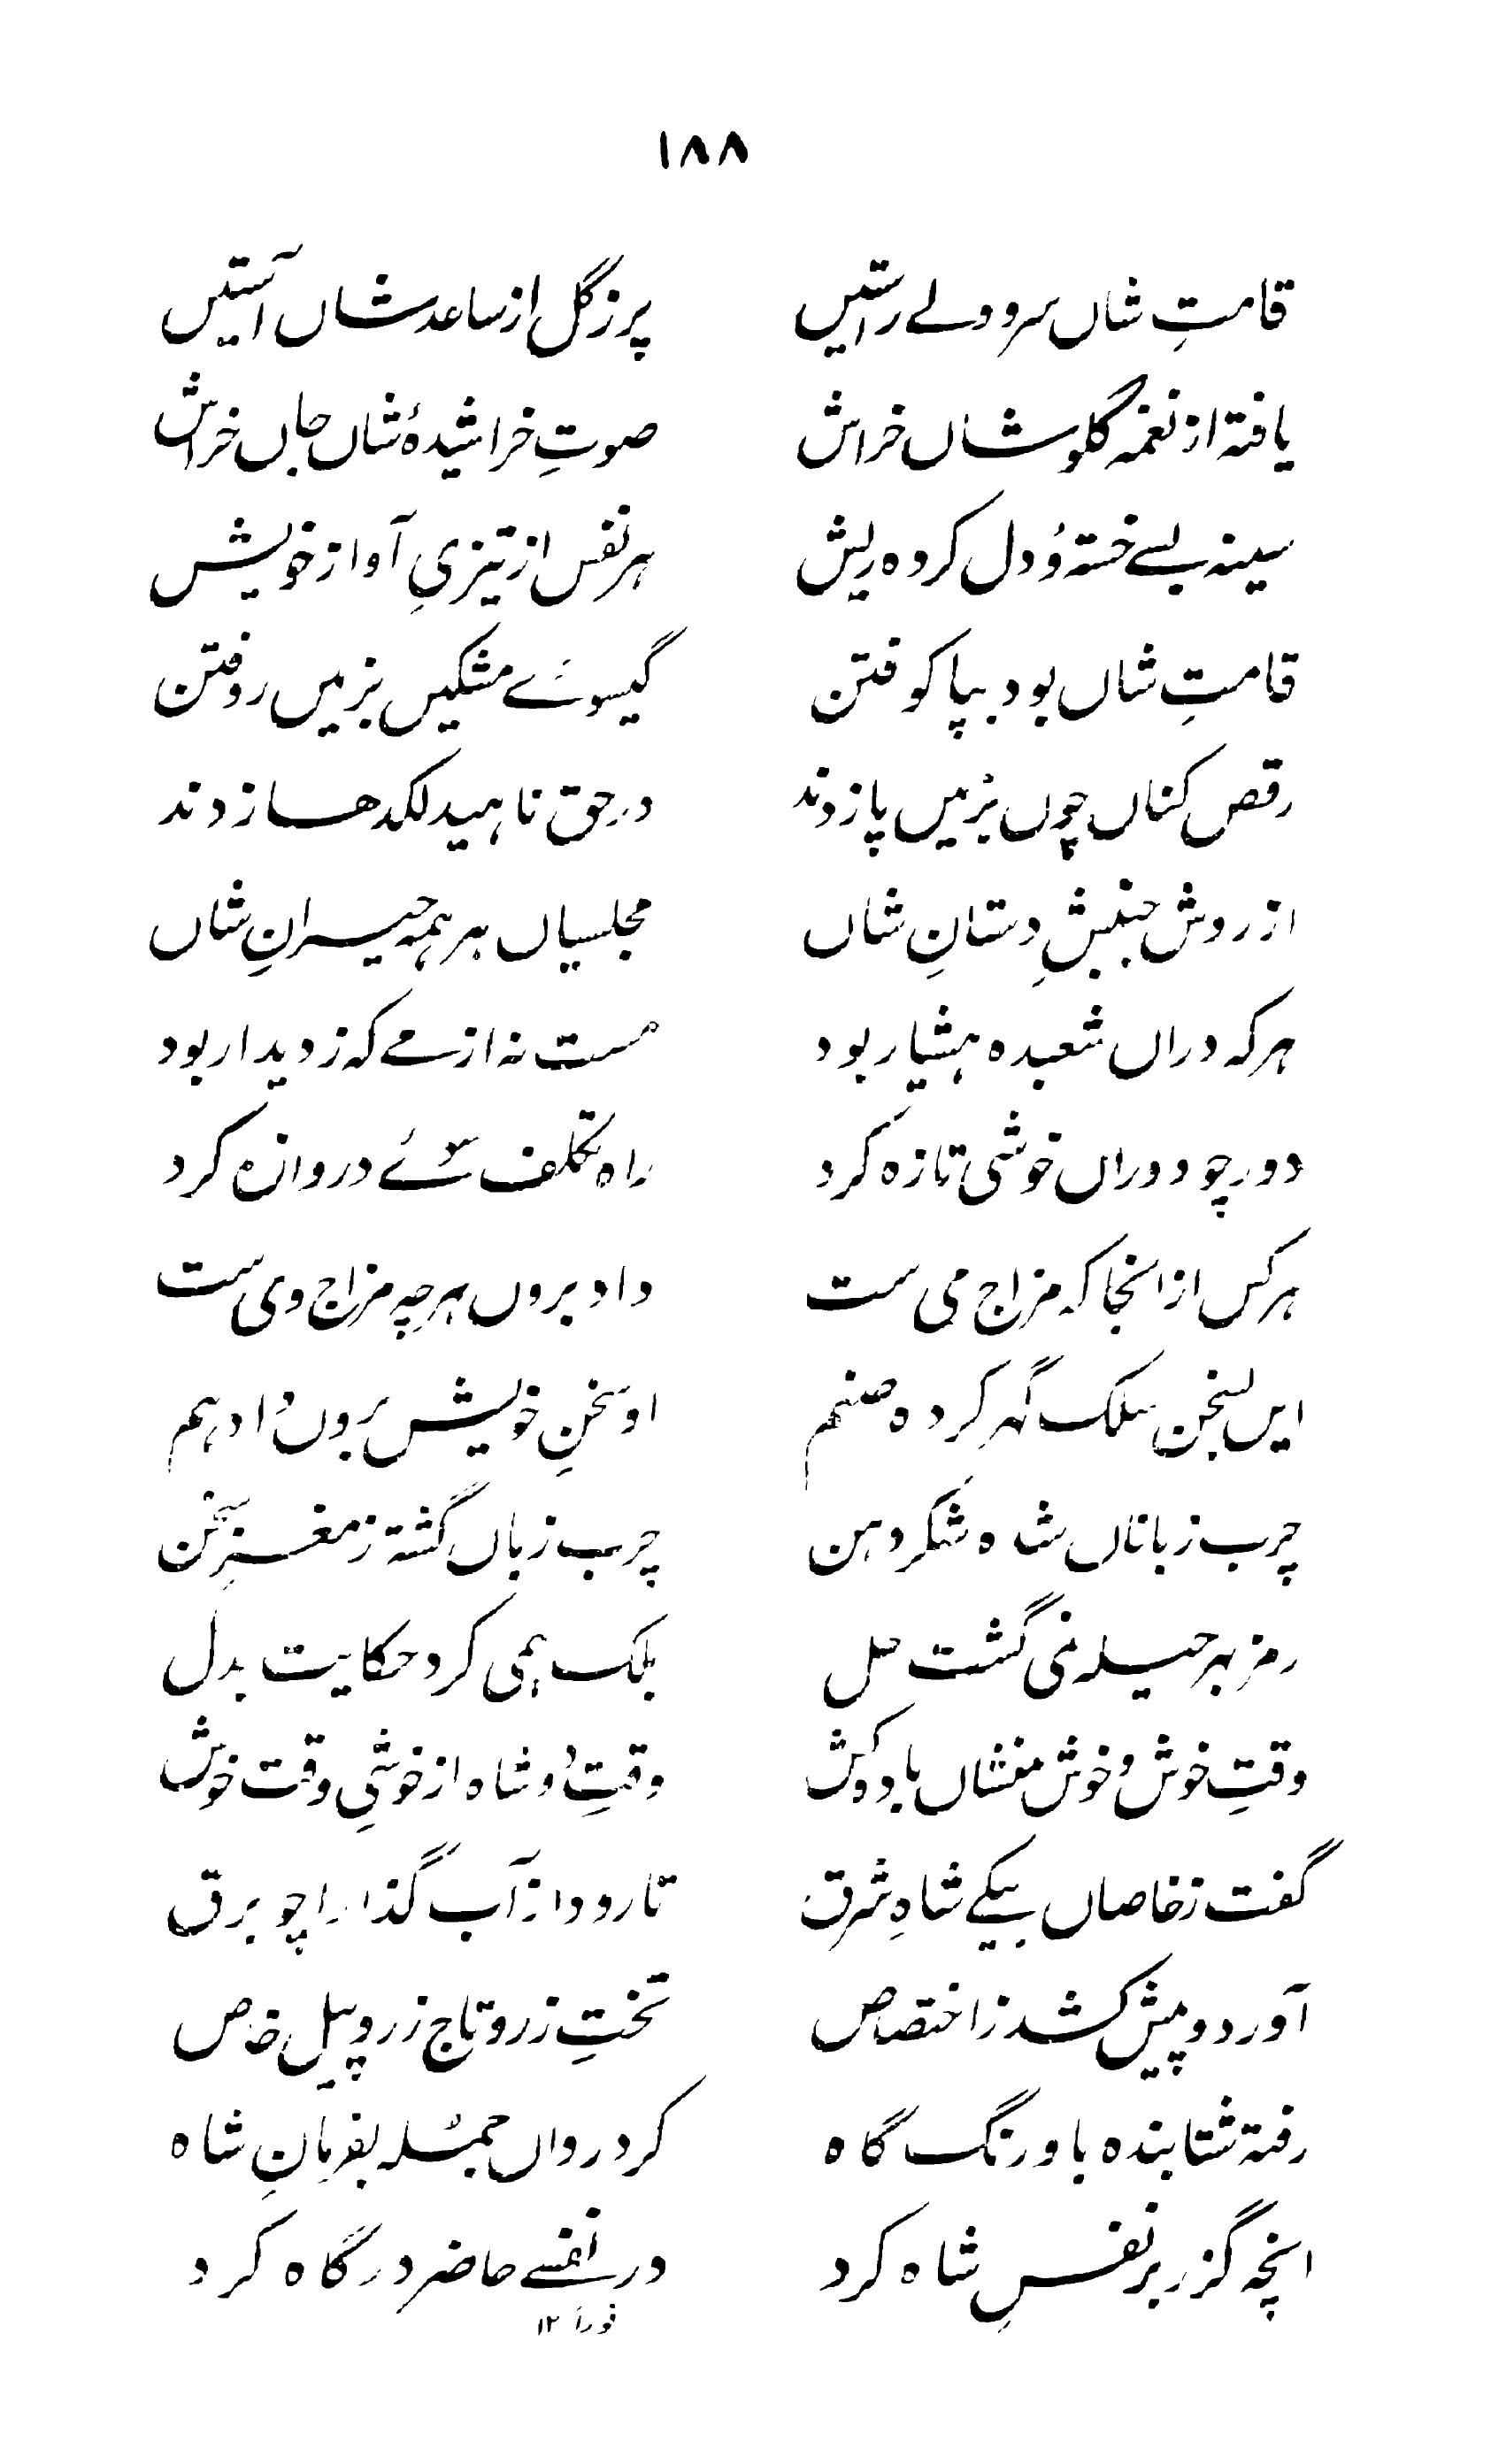 ۱۸۸
قامتِ شاں سرو ولے راستیں پر ز گل از ساعد شاں آستیں
یافتہ از نغمہ گلو شاں خراش صوتِ خراشیدۂ شاں جاں خراش
سینہ بسے خستہ وُ دل کردہ ریش ہر نفس از تیزیِ آواز خویش
قامتِ شاں بود بپا کوفتن گیسوۓ مشکیں بزمیں روفتن
رقص کناں چوں بزمیں پا زدند در حق ناہید لکدھا زدند
از روش جنبشِ دستانِ شاں مجلسیاں ہر ہمہ حیرانِ شاں
ہر کہ دراں شعبدہ ہشیار بود مست نہ از مے کہ ز دیدار بود
دور چو دوراں خوشی تازہ کرد راہ تکلف سوئے دروازہ کرد
ہر کس از انجا کہ مزاج می ست داد بروں ہرچہ مزاج وی ست
ایں بسخن سلک گہر کردہ ضم او سخنِ خویش بروں داد ہم
چرب زباناں شاہ شکر دہن چرب زباں گشتہ ز مغزِ سخن
رمز بہر حیلہ نمی گشت حل بلک ہمی کرد حکایت بدل
وقتِ خوش و خوش منشاں بادہ کش وقتِ دو شاہ از خوشیِ وقت خوش
گفت ز خاصاں بیکے شاہِ شرق تا رود از آب گذارا چو برق
آورد و پیش کشد ز اختصاص تختِ زر و تاج زر و پیل خاص
رفتہ شتابندہ باورنگ گاہ کرد رواں جملہ بفرمانِ شاہ
انچہ گزر بر نفسِ شاہ کرد در نفسے حاضر درگاہ کرد
فوراً ۱۲